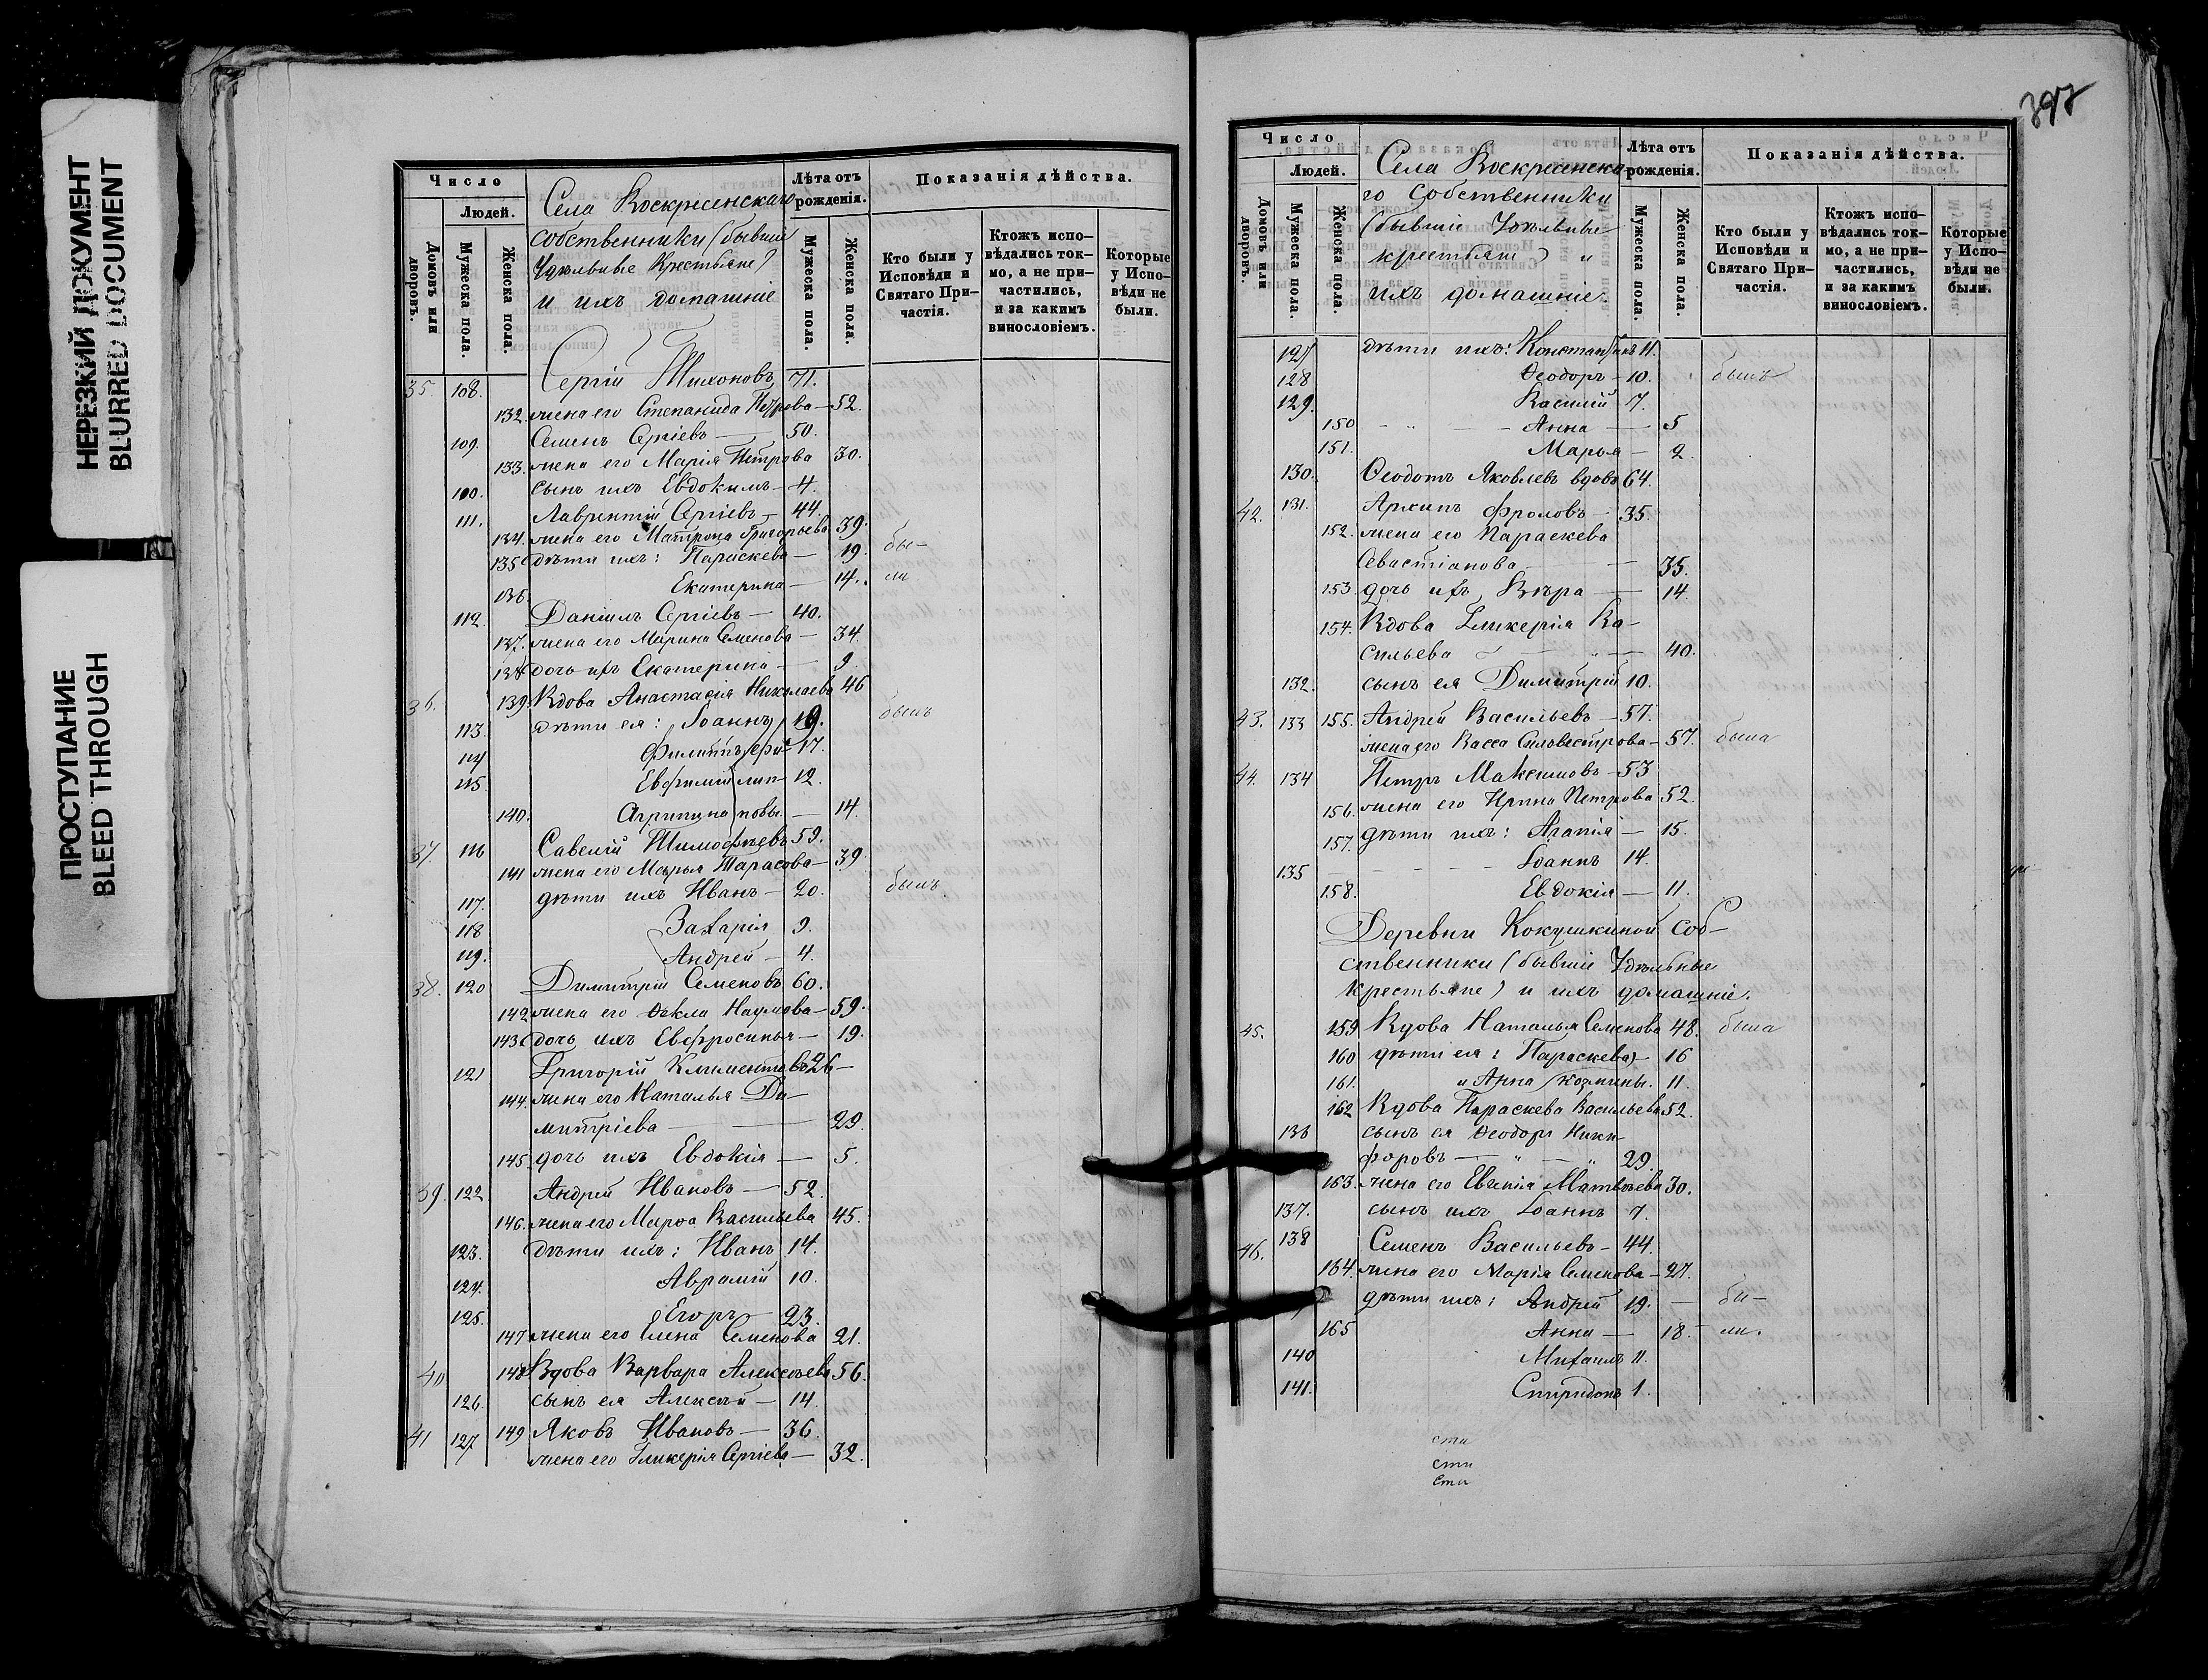 НЕРЕЗКИЙ ДОКУМЕНТ
BLURRED DOCUMENT
ПРОСТУПАНИЕ
BLEED THROUGH
Число
Людей.
Домовъ или дворовъ.
Мужеска пола.
Женска пола.
Села Воскресенскаго
собственники (бывшіе
Удѣльные Крестьяне)
и ихъ домашніе
Лѣта отъ рожденія.
Мужеска пола.
Женска пола.
Показанія дѣйства.
Кто были у Исповѣди и Святаго Причастія.
Ктожъ исповѣдались токмо, а не причастились, и за какимъ винословіемъ.
Которые у Исповѣди не были.
35 108. Сергій Тихоновъ 71.
132. жена его Степанида Петрова — 52.
109. Семенъ Сергіевъ — 50.
133. жена его Марія Петрова 30.
110. сынъ ихъ Евдокимъ — 4.
111. Лаврентій Сергіевъ — 44.
134. жена его Матрона Григорьева 39.
135 дѣти ихъ: Параскева — 19. бы-
136. Екатерина — 14. ли
112. Даніилъ Сергіевъ — 40.
137. жена его Марина Семенова — 34.
138 дочь ихъ Екатерина — 9.
36. 139. Вдова Анастасія Николаева 46
113. дѣти ея: Іоаннъ 19. былъ
114 Филиппъ Фи- 17.
115. Евфимій лип- 12.
140. Агрипина повы. — 14.
37. 116 Савелій Тимофѣевъ 59.
141 жена его Марья Тарасова — 39.
117. дѣти ихъ Иванъ — 20. былъ
118 Захарія 9.
119. Андрей — 4.
38. 120 Димитрій Семеновъ 60.
142 жена его Ѳекла Наумова — 59.
143 дочь ихъ Евфросинья — 19.
121 Григорій Климентовъ 26 —
144. жена его Наталья Ди-
митріева — 29.
145. дочь ихъ Евдокія — 5.
39. 122. Андрей Ивановъ — 52.
146. жена его Марѳа Васильева 45.
123. дѣти ихъ: Иванъ 14.
124. Аврамій 10.
125. Егоръ — 23.
147 жена его Елена Семенова 21.
40 148 Вдова Варвара Алексѣева 56.
126. сынъ ея Алексѣй — 14.
41 127 149 Яковъ Ивановъ — 36.
жена его Гликерія Сергіева — 32.
397
Число
Людей.
Домовъ или дворовъ.
Мужеска пола.
Женска пола.
Села Воскресенска-
го собственники
(бывшіе Удѣльные
крестьяне) и
ихъ домашніе.
Лѣта отъ рожденія.
Мужеска пола.
Женска пола.
Показанія дѣйства.
Кто были у Исповѣди и Святаго Причастія.
Ктожъ исповѣдались токмо, а не причастились, и за какимъ винословіемъ.
Которые у Исповѣди не были.
127 дѣти ихъ: Константинъ 11.
128 Ѳеодоръ — 10. былъ
129. Василій 7.
150 Анна — 5
151. Марья — 2.
130. Ѳеодотъ Яковлевъ вдовъ 64.
42. 131. Архипъ Фроловъ — 35.
152. жена его Параскева
Севастіанова — 35.
153. дочь ихъ Вѣра — 14.
154. Вдова Гликерія Ва-
сильева — 40.
132. сынъ ея Димитрій 10.
43. 133 155. Андрей Васильевъ — 57.
жена его Васса Сильвестрова — 57. была
44. 134 Петръ Максимовъ — 53
156. жена его Ирина Петрова 52.
157. дѣти ихъ: Агапія — 15.
135 Іоаннъ 14.
158. Евдокія — 11.
Деревни Кокушкиной соб-
ственники (бывшіе Удѣльные
крестьяне) и ихъ домашніе.
45. 159 Вдова Наталья Семенова 48. была
160 дѣти ея: Параскева 16
161. и Анна Козмины. 11.
162 Вдова Параскева Васильева 52.
136 сынъ ея Ѳеодоръ Ники-
форовъ — 29.
163. жена его Евгенія Матвѣева 30.
137. сынъ ихъ Іоаннъ 7.
46. 138 Семенъ Васильевъ — 44.
164. жена его Марія Семенова — 27.
дѣти ихъ: Андрей 19. — бы-
165 Анна — 18. ли.
140 Михаилъ 11.
141. Спиридонъ 1.
сти
сти
сти